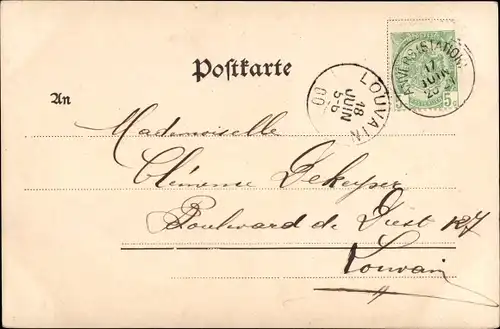 Postkarte
ANVERS (STATION)
17
JUIN
5 C
LOUVAIN
18
JUIN
5-6
00
An
Mademoiselle
Clémence Dekeyper
Boulevard de Diest 127
Louvain